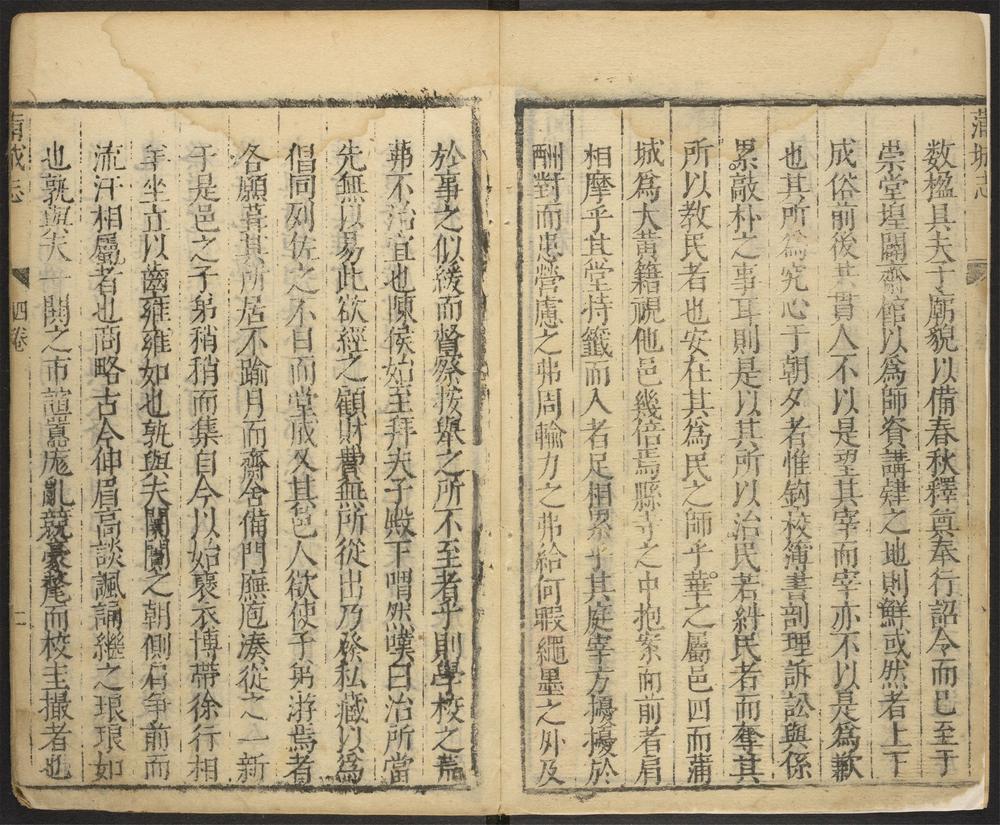 蒲城志
数楹具夫子廟貌以備春秋釋奠奉行詔令而已至于
崇堂埕闢齋館以為師資講肄之地則鮮或然者上下
成俗前後其貫人不以是望其宰而宰亦不以是為歉
也其所為究心于朝夕者惟鉤校簿書剖理訴訟與係
累敲朴之事耳則是以其所以治民者紲民者而奪其
所以教民者也安在其為民之師乎華之屬邑四而蒲
城為大黃籍視他邑幾倍焉縣寺之中抱案而前者肩
相摩乎其堂持籤而入者足相累乎其庭宰方擾擾於
酬對而患營慮之弗周輸力之弗給何暇繩墨之外及
於事之似緩而督察按舉之所不至者乎則學校之荒
茀不治宜也陳侯始至拜夫子殿下喟然嘆曰治所當
先無以易此欲經之顧財費無所從出乃發私藏以為
倡同列佐之不日而堂成又其邑人欲使子弟游焉者
各願葺其所居不踰月而齋舍備門廡庖湊從之一新
于是邑之子弟稍稍而集自今以始褒衣博帶徐行相
坐立以齒雍雍如也孰與夫闐闐之朝側肩爭前而
流汗相屬者也商略古今伸眉高談諷誦繼之琅琅如
也孰與夫闤之市諠囂厖亂競豪氂而校圭撮者也
蒲城志
四卷